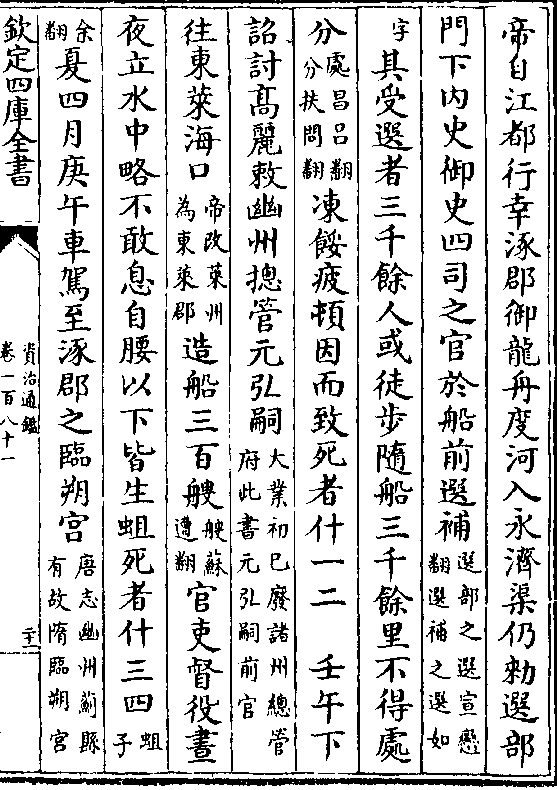 帝自江都行幸涿郡御龍舟度河入永濟渠仍勑選部
門下内史御史四司之官於船前選補選部之選宣戀翻選補之選如
字其受選者三千餘人或徒步隨船三千餘里不得處
分處昌呂翻分扶問翻凍餒疲頓因而致死者什一二 壬午下
詔討高麗敕幽州摠管元弘嗣大業初已廢諸州總管府此書元弘嗣前官
往東萊海口帝改萊州為東萊郡造船三百艘艘蘇遭翻官吏督役晝
夜立水中略不敢息自腰以下皆生蛆死者什三四蛆子
余翻夏四月庚午車駕至涿郡之臨朔宮唐志幽州薊縣有故隋臨朔宮
欽定四庫全書
資治通鑑
卷一百八十一
二十二